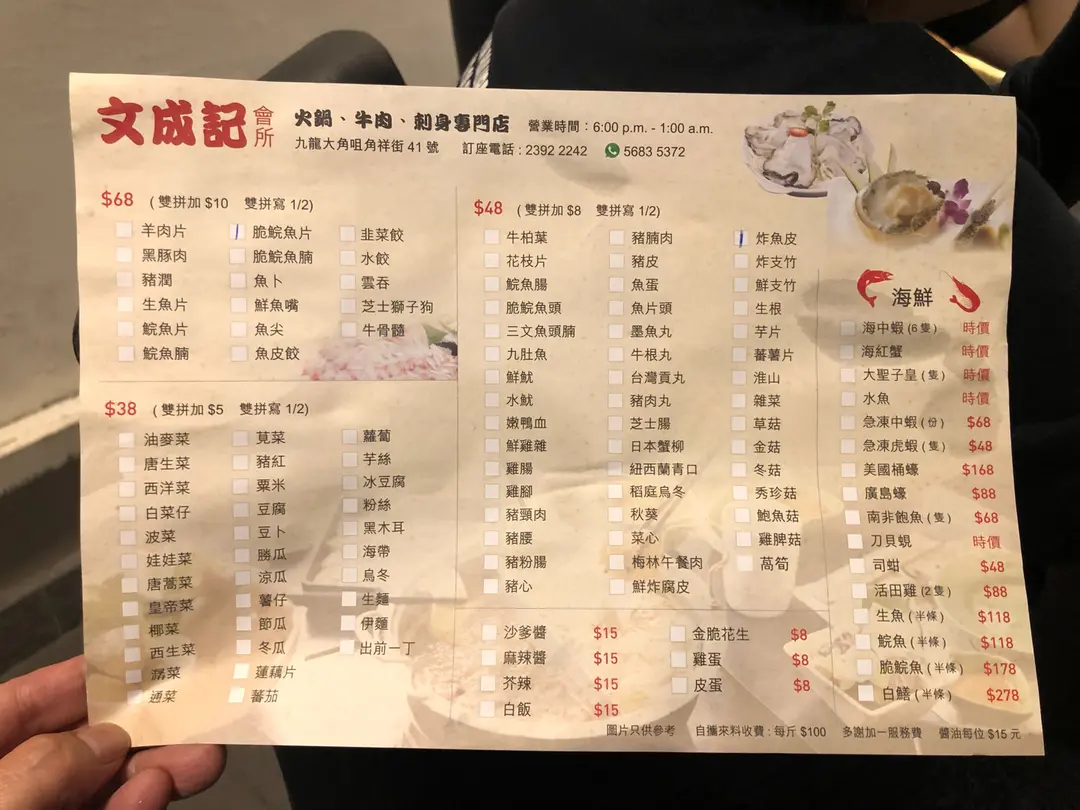 文成記 會所
火鍋、牛肉、刺身專門店 營業時間：6:00 p.m. - 1:00 a.m.
九龍大角咀角祥街 41 號 訂座電話 : 2392 2242 5683 5372
$68 ( 雙拼加 $10 雙拼寫 1/2)
羊肉片
黑豚肉
豬潤
生魚片
鯇魚片
鯇魚腩
脆鯇魚片
脆鯇魚腩
魚卜
鮮魚嘴
魚尖
魚皮餃
韭菜餃
水餃
雲吞
芝士獅子狗
牛骨髓
$38 ( 雙拼加 $5 雙拼寫 1/2)
油麥菜
唐生菜
西洋菜
白菜仔
菠菜
娃娃菜
唐蒿菜
皇帝菜
椰菜
西生菜
潺菜
通菜
莧菜
豬紅
粟米
豆腐
豆卜
勝瓜
涼瓜
薯仔
節瓜
冬瓜
蓮藕片
蕃茄
蘿蔔
芋絲
冰豆腐
粉絲
黑木耳
海帶
烏冬
生麵
伊麵
出前一丁
$48 ( 雙拼加 $8 雙拼寫 1/2)
牛柏葉
花枝片
鯇魚腸
脆鯇魚頭
三文魚頭腩
九肚魚
鮮魷
水魷
嫩鴨血
鮮雞雜
雞腸
雞腳
豬頸肉
豬腰
豬粉腸
豬心
豬腩肉
豬皮
魚蛋
魚片頭
墨魚丸
牛根丸
台灣貢丸
豬肉丸
芝士腸
日本蟹柳
紐西蘭青口
稻庭烏冬
秋葵
菜心
梅林午餐肉
鮮炸腐皮
炸魚皮
炸支竹
鮮支竹
生根
芋片
蕃薯片
淮山
雜菜
草菇
金菇
冬菇
秀珍菇
鮑魚菇
雞脾菇
萵筍
沙爹醬 $15
麻辣醬 $15
芥辣 $15
白飯 $15
金脆花生 $8
雞蛋 $8
皮蛋 $8
海鮮
海中蝦 ( 6 隻 ) 時價
海紅蟹 時價
大聖子皇 ( 隻 ) 時價
水魚 時價
急凍中蝦 ( 份 ) $68
急凍虎蝦 ( 隻 ) $48
美國桶蠔 $168
廣島蠔 $88
南非鮑魚 ( 隻 ) $68
刀貝蜆 時價
司蚶 $48
活田雞 ( 2 隻 ) $88
生魚 ( 半條 ) $118
鯇魚 ( 半條 ) $118
脆鯇魚 ( 半條 ) $178
白鱔 ( 半條 ) $278
圖片只供參考 自攜來料收費 : 每斤 $100 多謝加一服務費 醬油每位 $15 元